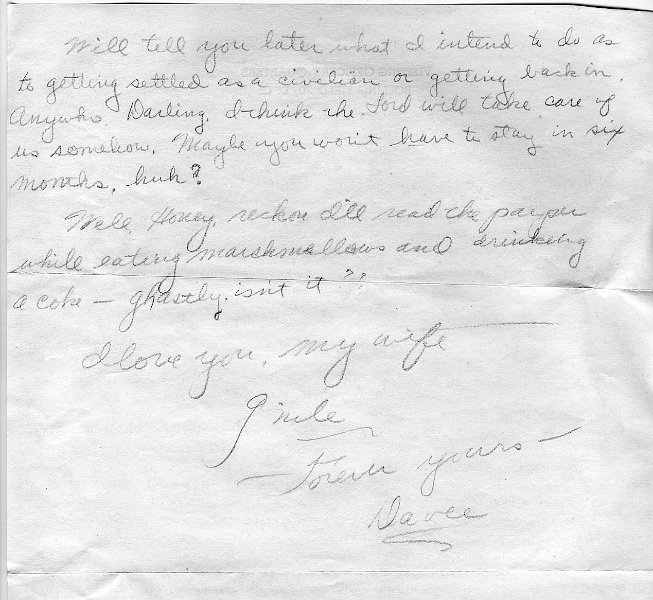 Will tell you later what I intend to do as
to getting settled as a civilian or getting back in.
Anywho Darling, I think the Lord will take care of
us somehow. Maybe you won't have to stay in six
months, huh?
Well, Honey, reckon I'll read the paper
while eating marshmallows and drinking
a coke — ghastly, isn't it?!
I love you, my wife
Forever yours —
Davee